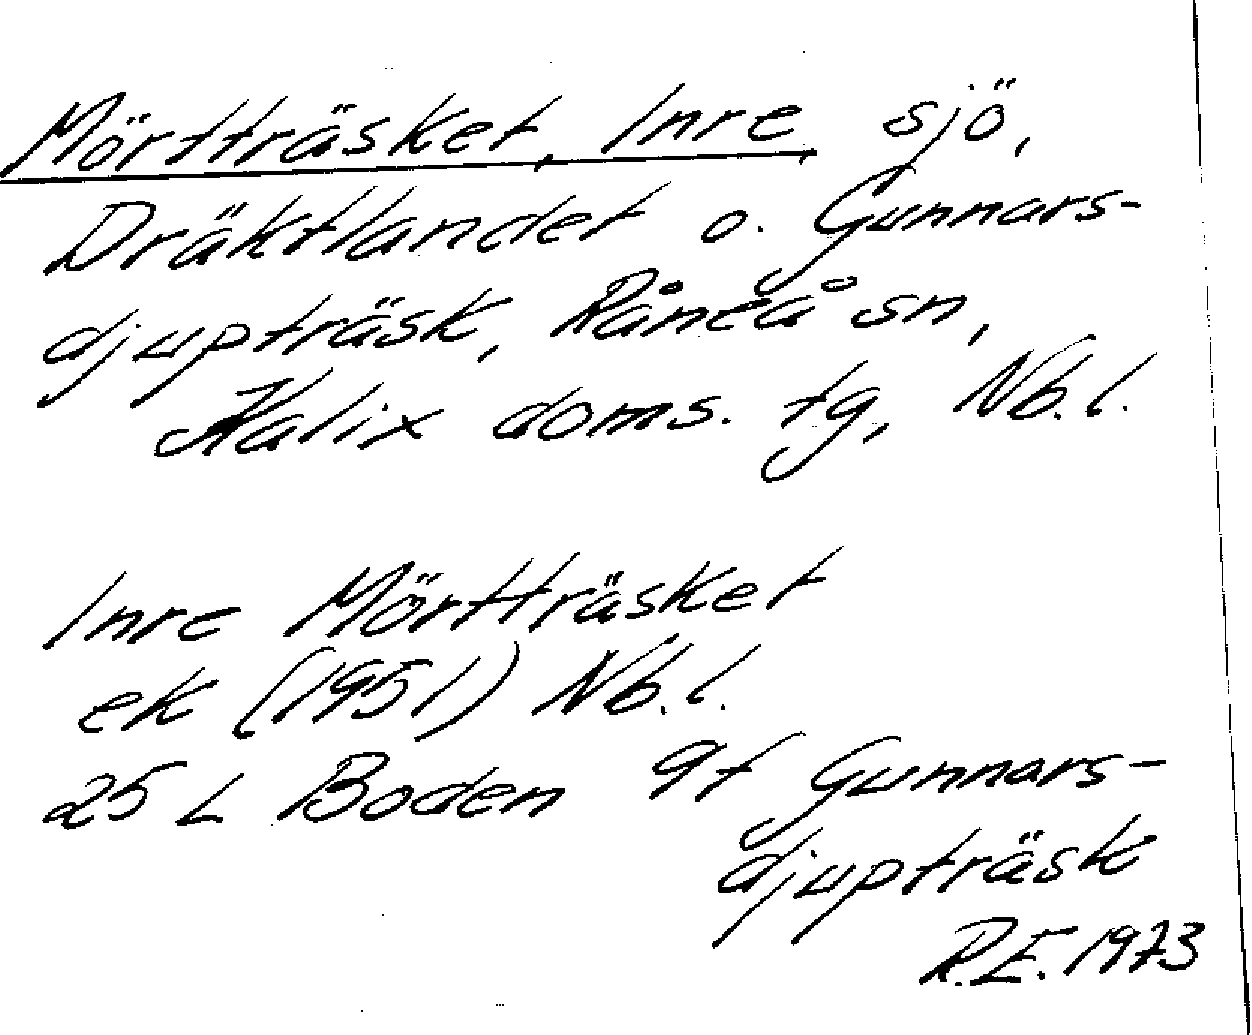 Mörtträsket, Inre, sjö,
Dräktlandet o. Gunnars-
djupträsk, Råneå sn,
Kalix doms. tg, Nb.l.
Inre Mörtträsket
ek (1951) Nb.l.
25 L Boden 9f Gunnars-
djupträsk
R.E. 1973